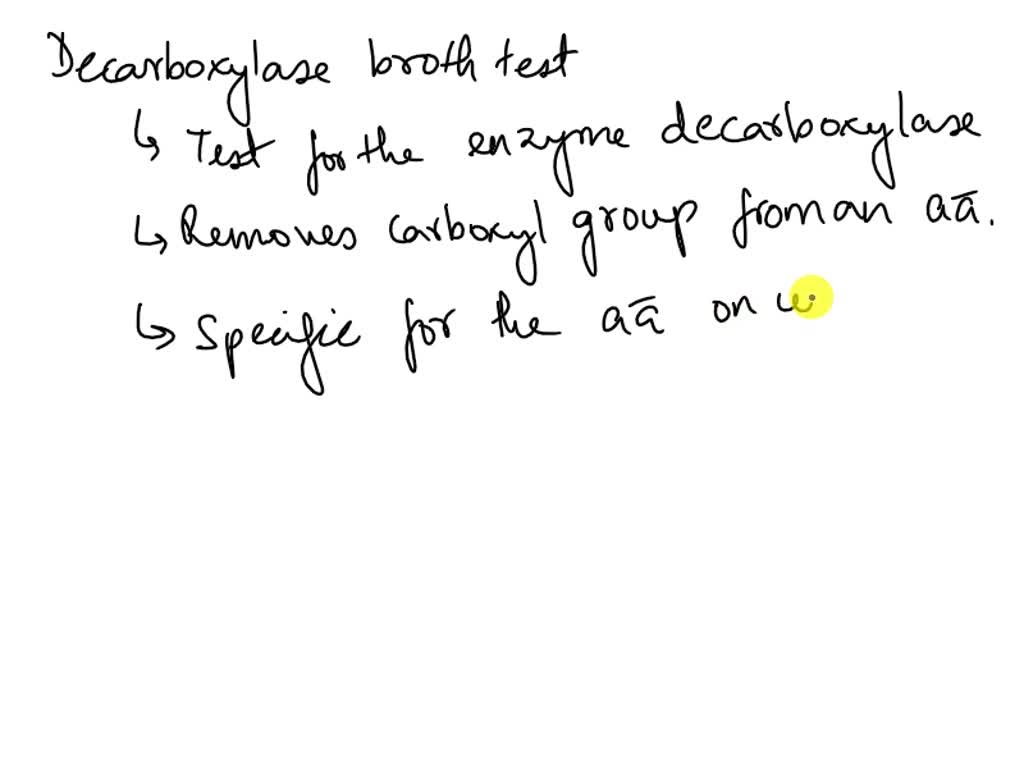 Decarboxylase broth test
↳ Test for the enzyme decarboxylase
↳ Removes carboxyl group from an aā.
↳ Specific for the aā on